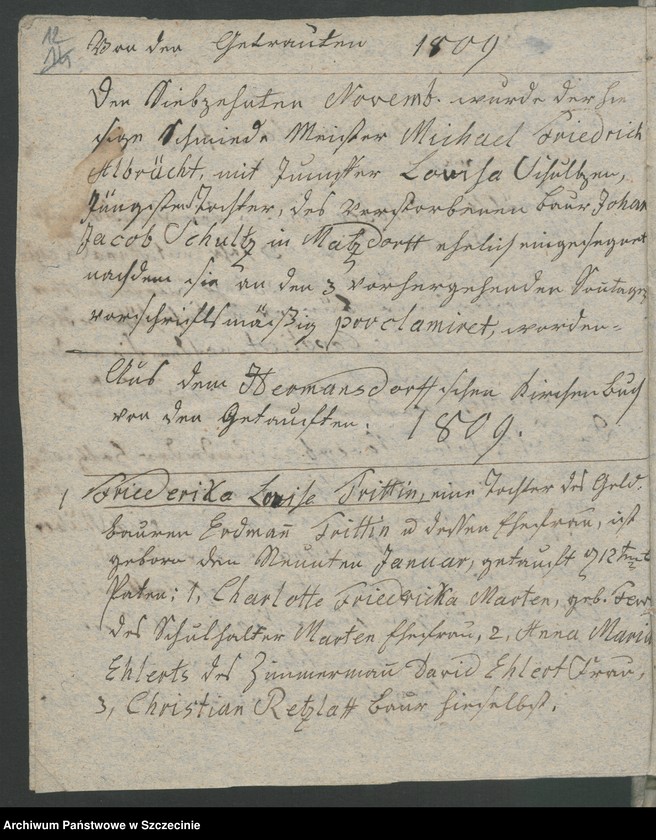 12
14
Von den Getrauten 1809
Den Siebzehnten Novemb. wurde der hie
sige Schmiede Meister Michael Friedrich
Albrächt, mit Jumfer Lovisa Schultzen,
Jüngsten Tochter, des Verstorbenen Baur Johan
Jacob Schultz in Matzdorff ehelich eingesegnet
nachdem sie an den 3 vorhergehenden Sontagen
vorschriftsmäßig proclamiret, worden=
Aus dem Hermansdorffschen Kirchen Buch
von den Getauften. 1809.
1 Friederika Lovisa Trittin, eine Tochter des
bauren Erdmañ Trittin u dessen Ehefrau, ist
geborn den Neunten Januar, getauft 12
Paten: 1, Charlotte Friedricka Marten, geb.
des Schulhalter Marten Ehefrau, 2, Anna Maria
Ehlerts des Zimmermañ David Ehlert Frau,
3, Christian Retzlaff Baur hieselbst.
Archiwum Państwowe w Szczecinie